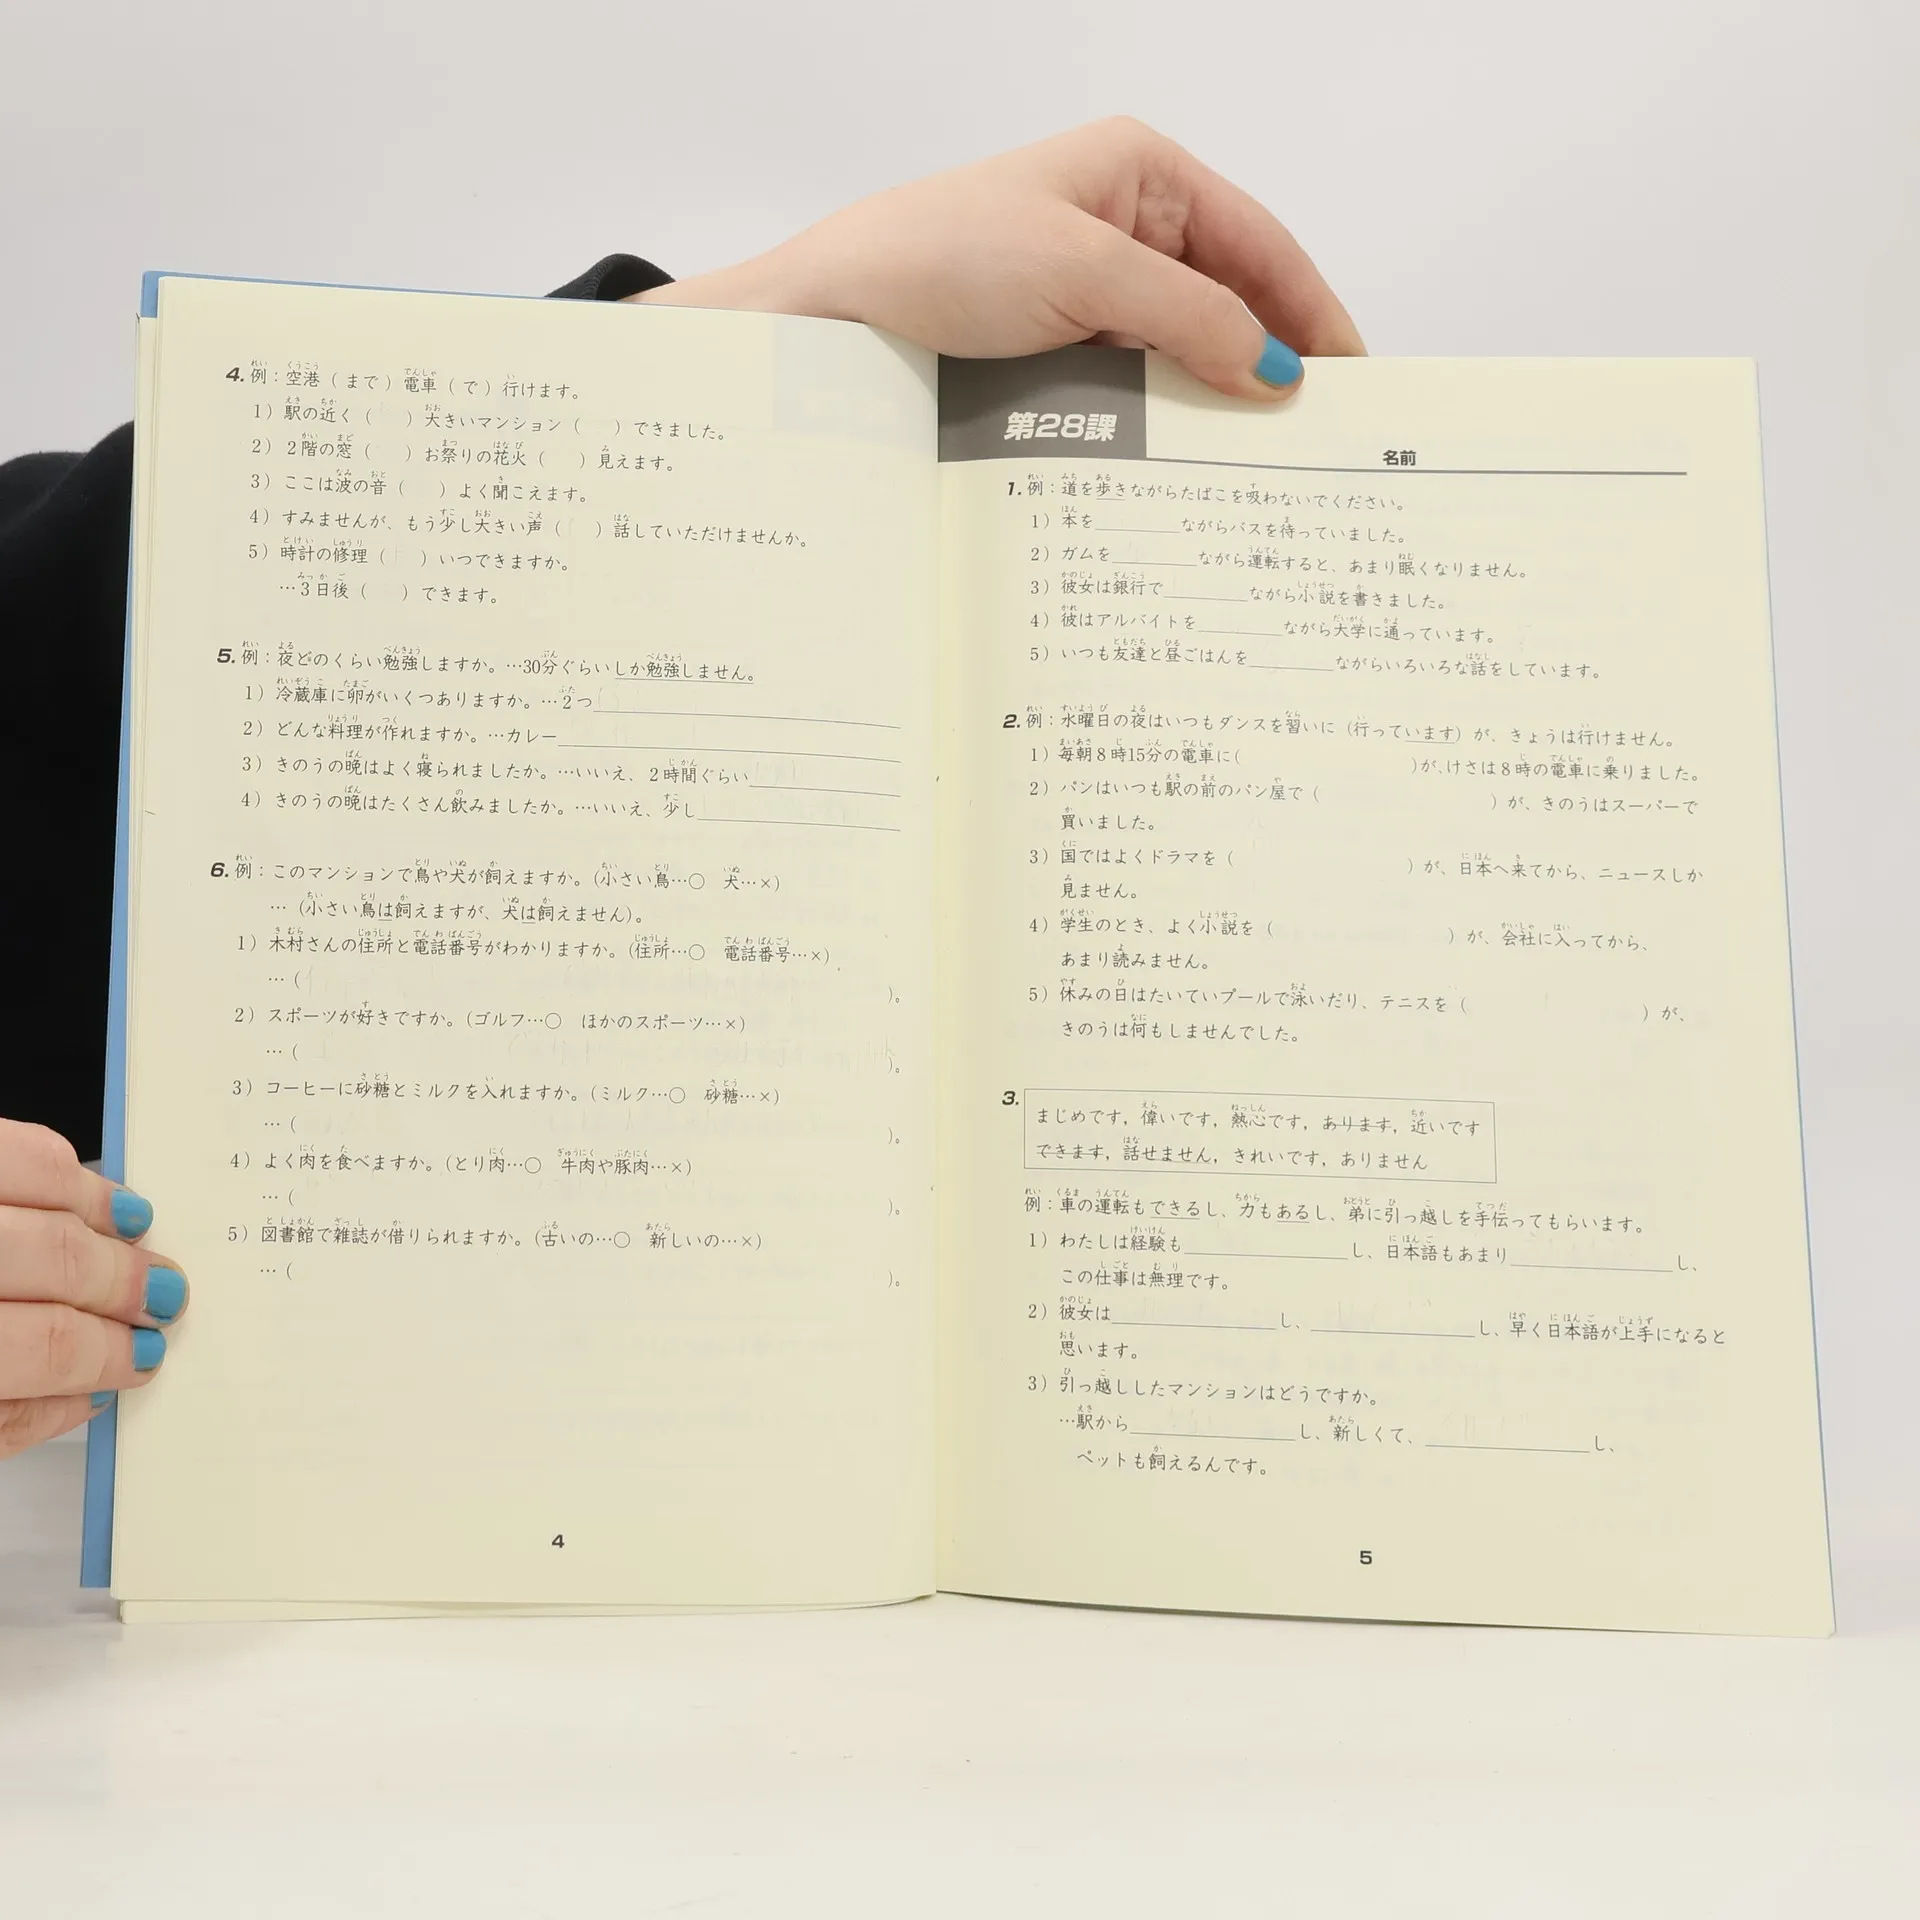 4. 例：空港（まで）電車（で）行けます。
1）駅の近く（　）大きいマンション（　）できました。
2）2階の窓（　）お祭りの花火（　）見えます。
3）ここは波の音（　）よく聞こえます。
4）すみませんが、もう少し大きい声（　）話していただけませんか。
5）時計の修理（　）いつできますか。
…3日後（　）できます。
5. 例：夜どのくらい勉強しますか。…30分ぐらいしか勉強しません。
1）冷蔵庫に卵がいくつありますか。…2つ＿＿＿＿
2）どんな料理が作れますか。…カレー＿＿＿＿
3）きのうの晩はよく寝られましたか。…いいえ、2時間ぐらい＿＿＿＿
4）きのうの晩はたくさん飲みましたか。…いいえ、少し＿＿＿＿
6. 例：このマンションで鳥や犬が飼えますか。（小さい鳥…○　犬…×）
…（小さい鳥は飼えますが、犬は飼えません）。
1）木村さんの住所と電話番号がわかりますか。（住所…○　電話番号…×）
…（　　　　）。
2）スポーツが好きですか。（ゴルフ…○　ほかのスポーツ…×）
…（　　　　）。
3）コーヒーに砂糖とミルクを入れますか。（ミルク…○　砂糖…×）
…（　　　　）。
4）よく肉を食べますか。（とり肉…○　牛肉や豚肉…×）
…（　　　　）。
5）図書館で雑誌が借りられますか。（古いの…○　新しいの…×）
…（　　　　）。
4
第28課
名前
1. 例：道を歩きながらたばこを吸わないでください。
1）本を＿＿＿＿ながらバスを待っていました。
2）ガムを＿＿＿＿ながら運転すると、あまり眠くなりません。
3）彼女は銀行で＿＿＿＿ながら小説を書きました。
4）彼はアルバイトを＿＿＿＿ながら大学に通っています。
5）いつも友達と昼ごはんを＿＿＿＿ながらいろいろな話をしています。
2. 例：水曜日の夜はいつもダンスを習いに（行っています）が、きょうは行けません。
1）毎朝8時15分の電車に（　　　　）が、けさは8時の電車に乗りました。
2）パンはいつも駅の前のパン屋で（　　　　）が、きのうはスーパーで
買いました。
3）国ではよくドラマを（　　　　）が、日本へ来てから、ニュースしか
見ません。
4）学生のとき、よく小説を（　　　　）が、会社に入ってから、
あまり読みません。
5）休みの日はたいていプールで泳いだり、テニスを（　　　　）が、
きのうは何もしませんでした。
3.
まじめです，偉いです，熱心です，あります，近いです
できます，話せません，きれいです，ありません
例：車の運転もできるし、力もあるし、弟に引っ越しを手伝ってもらいます。
1）わたしは経験も＿＿＿＿し、日本語もあまり＿＿＿＿し、
この仕事は無理です。
2）彼女は＿＿＿＿し、＿＿＿＿し、早く日本語が上手になると
思います。
3）引っ越ししたマンションはどうですか。
…駅から＿＿＿＿し、新しくて、＿＿＿＿し、
ペットも飼えるんです。
5